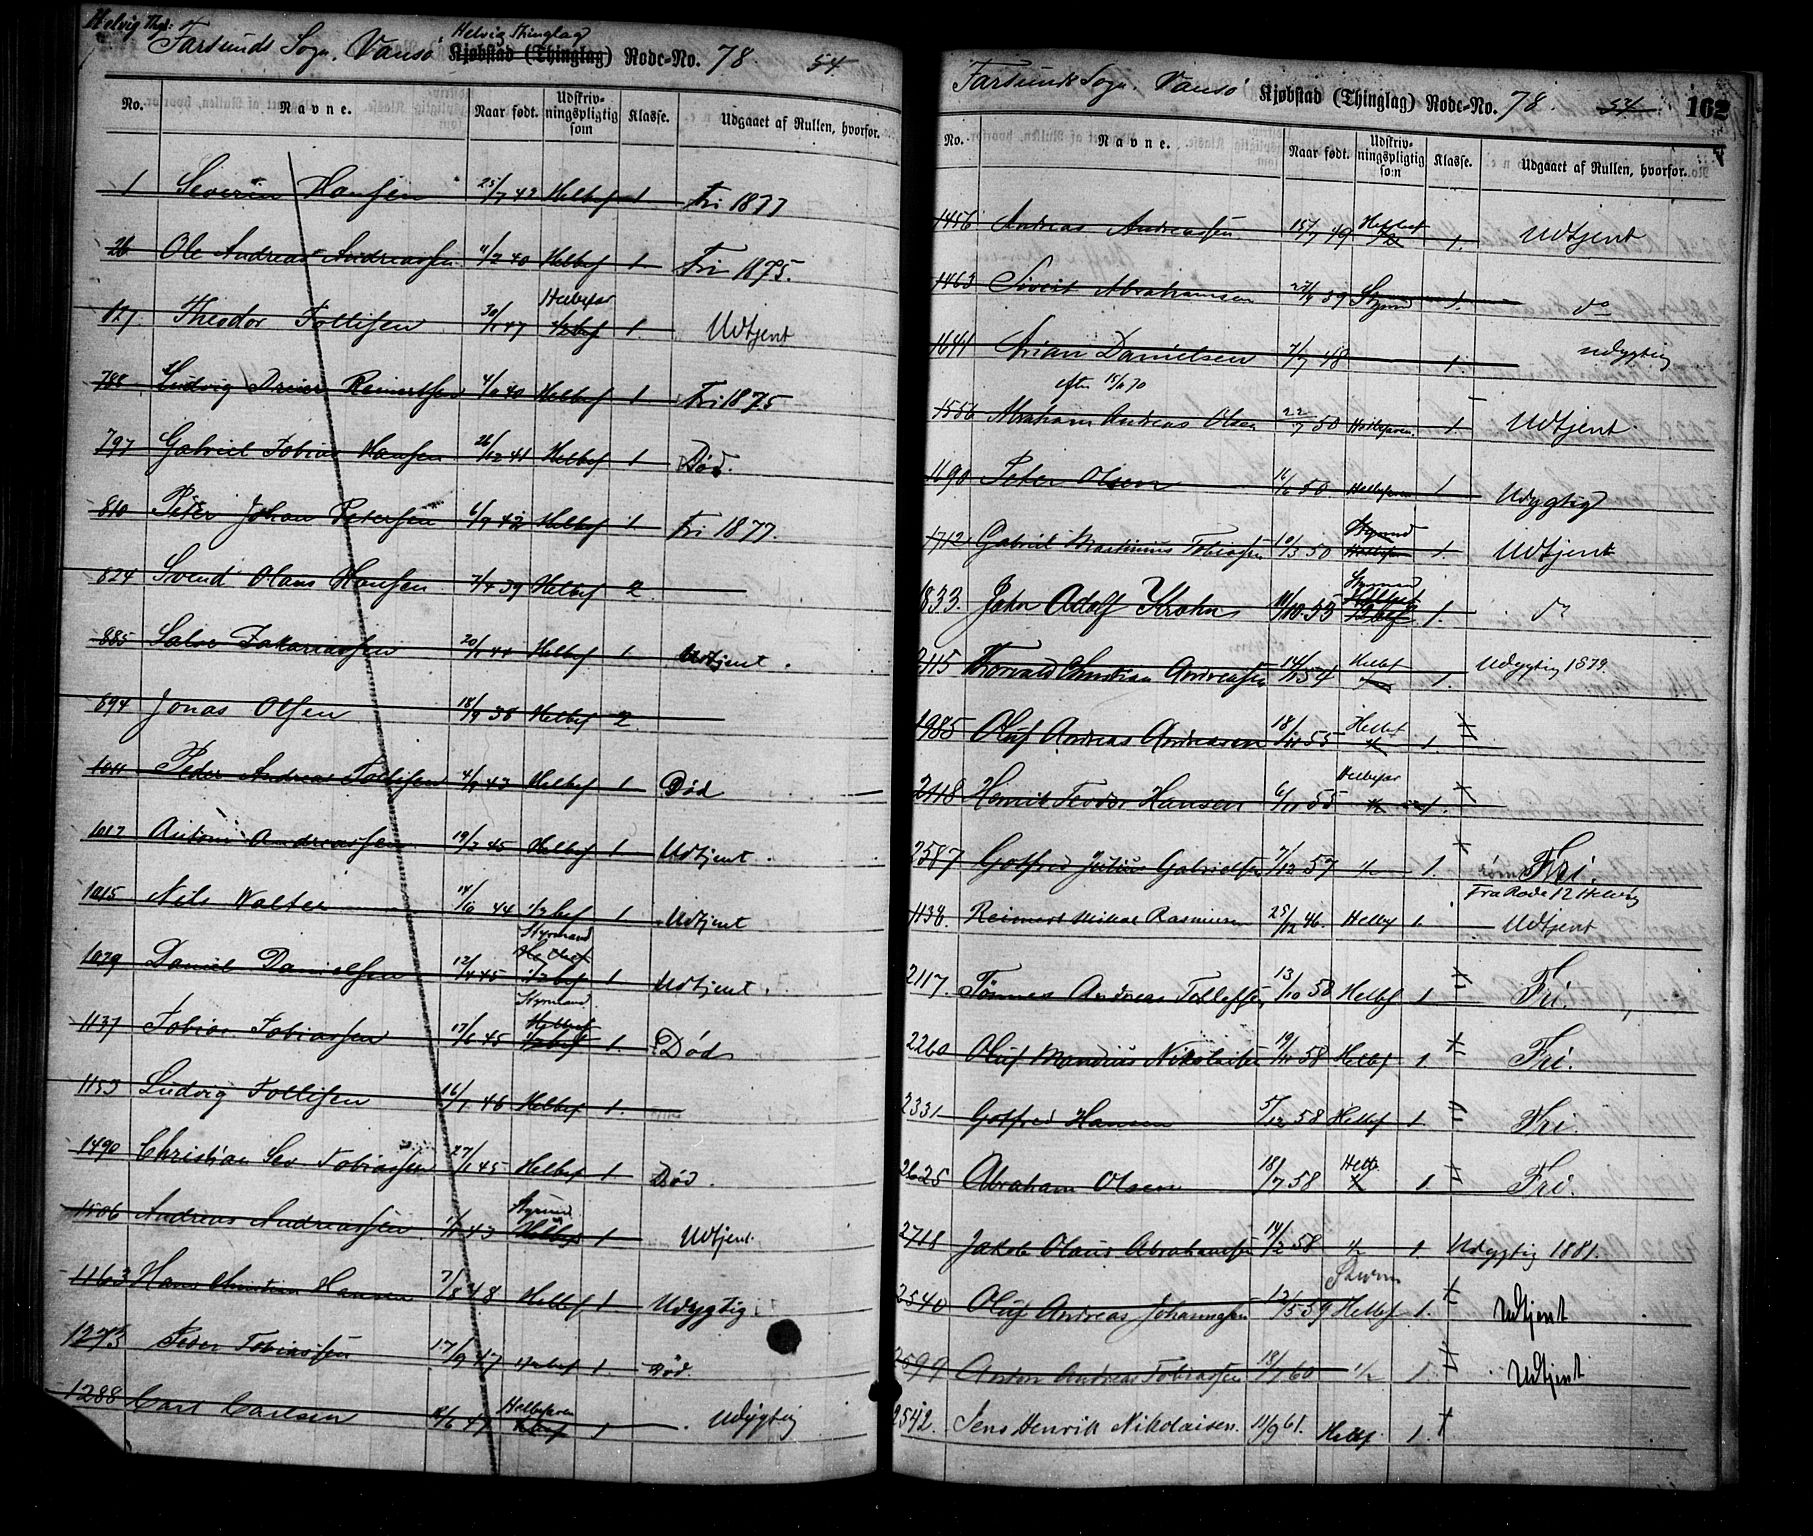 Helvig Thgl:
Farsunds Sogn. Vansø Helvig Thinglag
Kjøbstad (Thinglag) Rode-No. 78. 54
No. Navne. Naar født. Udskrivningspligtig som Klasse. Udgaaet af Rullen, hvorfor.
1 Severin Hansen 25/7 42 Helbef 1 Fri 1877
26 Ole Andreas Andreassen 11/2 40 Helbef 1 Fri 1875.
127. Theodor Tollisen 30/1 47 Helbefar 1/2bef 1. Udtjent
788 Ludvig Dreier Reinertsen 4/6 40 Helbef 1 Fri 1875
797 Gabriel Tobias Hansen 26/12 41 Helbef 1 Død.
810 Peter Johan Petersen 6/9 42 Helbef 1 Fri 1877.
824 Svend Olaus Hansen 7/4 39 Helbef 2
885 Salve Zakariassen 20/1 44 Helbef 1 Udtjent.
894 Jonas Olsen 18/9 38 Helbef 2
1011 Peder Andreas Tollisen 4/1 43 Helbef 1 Død
1012 Anton Andreassen 19/2 45 Helbef 1. Udtjent.
1015 Nils Walter 14/6 44 1/2bef 1 Udtjent
1029 Daniel Danielsen 12/4 45 Styrmand Helbef 1/2bef 1 Udtjent.
1137 Tobias Tobiassen 17/6 45 Styrmand Helbef 1/2bef 1. Død
1153 Ludvig Tollisen 16/1 46 Helbef 1.
1490 Christian Sev Tobiassen 27/1 45 Helbef 1 Død.
1506 Andreas Andreassen 1/1 43 Styrmd Helbef 1 Udtjent.
1163 Hans Christian Hansen 7/8 48 Helbef 1 Udygtig
1273 Peder Tobiassen 17/9 47 1/2bef 1. Død.
1288 Carl Carlsen 11/6 47 Helbefaren 1/2bef 1 Udygtig
Farsunds Sogn. Vansø Kjøbstad (Thinglag) Rode-No. 78. 54 162
No. Navne. Naar født. Udskrivningspligtig som Klasse. Udgaaet af Rullen, hvorfor.
1456 Andreas Andreassen 15/7 49 Helbef 1/2 1. Udtjent
1463 Sivert Abrahamsen 23/4 39 Styrmd 1. do
1641 Arian Danielsen 7/7 48 1. udygtig
efter 15/11 70
1556 Abraham Andreas Olsen 22/7 50 Helbefaren 1. Udtjent.
1690 Peter Olsen 16/6 50 Helbefaren 1 Udygtig
1712 Gabriel Martinius Tobiassen 10/3 50 Styrmd Helbefaren 1. Udtjent
1833. John Adolf Krohn 11/10 53 Styrmand Helbef 1/2bef 1. do
2115 Thorvald Christian Andreassen 14/1 54 Helbef 1/2 1. Udygtig 1879.
1985 Oluf Andreas Andreasen 18/11 55 Helbef 1/2 1.
2118 Henrik Teodor Hansen 6/11 55 Helbefar 1/2 1.
2587 Gotfred Julius Gabrielsen 7/12 57 1/2 1. Fri.
Fra Rode 12 Helvig
1138. Reinert Mikal Rasmusen 25/12 46. Helbf 1. Udtjent
2117. Tønnes Andreas Tollefsen 13/10 58 Helbf 1 Fri.
2260 Oluf Mandius Nikolaisen 19/11 58 Helbf 1. Fri.
2331 Gotfred Hansen 5/12 58 Helbef 1. Fri.
2625 Abraham Olsen 18/7 58 Helb. 1/2 1. Fri.
2718 Jakob Olaus Abrahamsen 14/2 58 1/2 1. Udygtig 1881.
2540 Oluf Andreas Johannesen 12/5 59 Styrm Helbf 1. Udtjent
2599 Anton Andreas Tobiassen 18/1 60 1/2 1. Udtjent
2542. Jens Henrik Nikolaisen. 11/9 61. Helbf. 1.